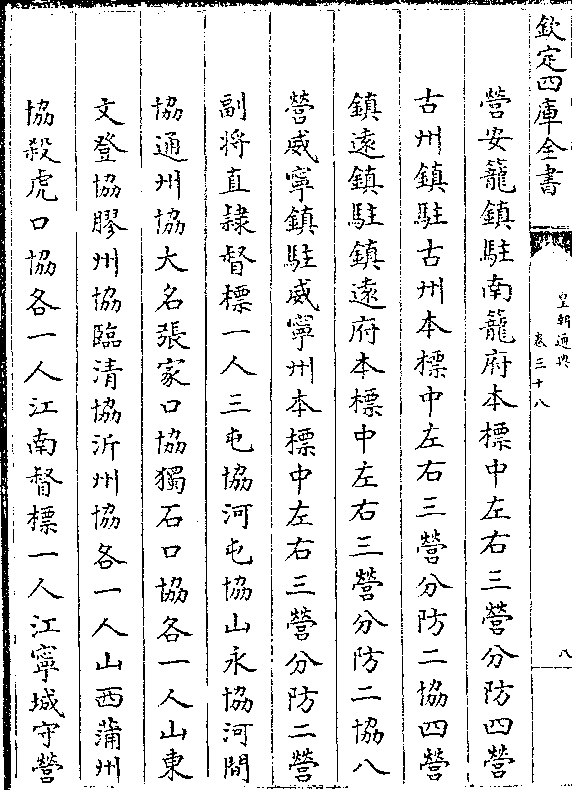 欽定四庫全書
皇朝通典
卷三十八
八
營安籠鎮駐南籠府本標中左右三營分防四營
古州鎮駐古州本標中左右三營分防二協四營
鎮遠鎮駐鎮遠府本標中左右三營分防二協八
營威寧鎮駐威寧州本標中左右三營分防二營
副将直隷督標一人三屯協河屯協山永協河間
協通州協大名張家口協獨石口協各一人山東
文登協膠州協臨清協沂州協各一人山西蒲州
協殺虎口協各一人江南督標一人江寧城守營